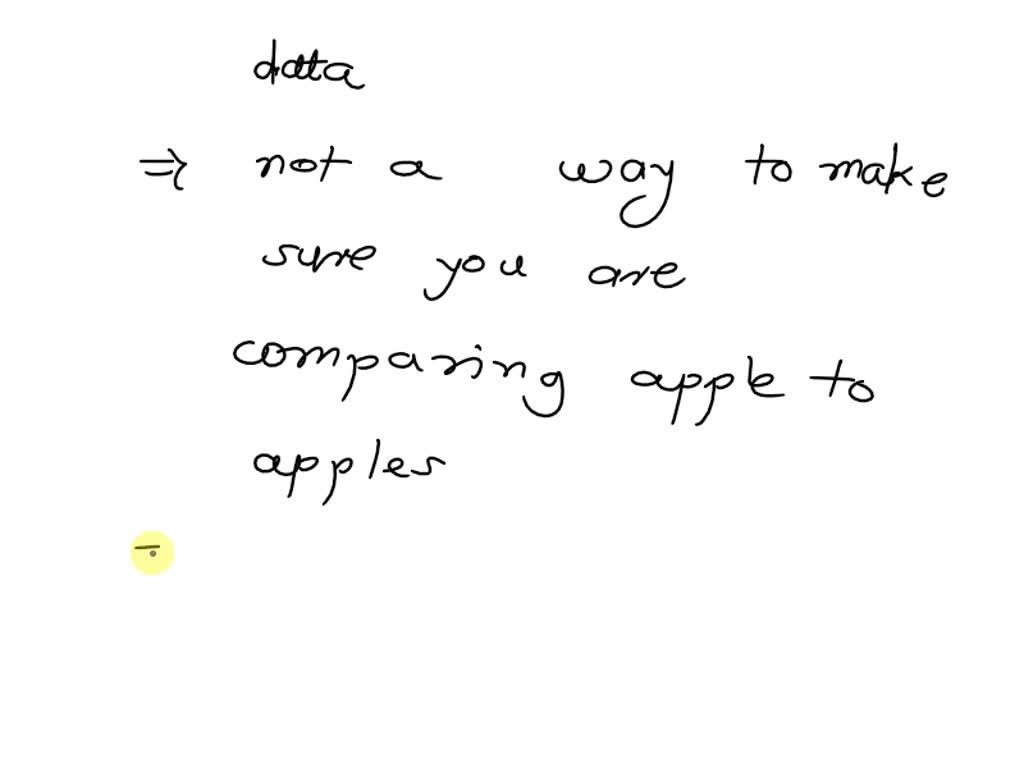 data
⇒ not a way to make
sure you are
comparing apple to
apples